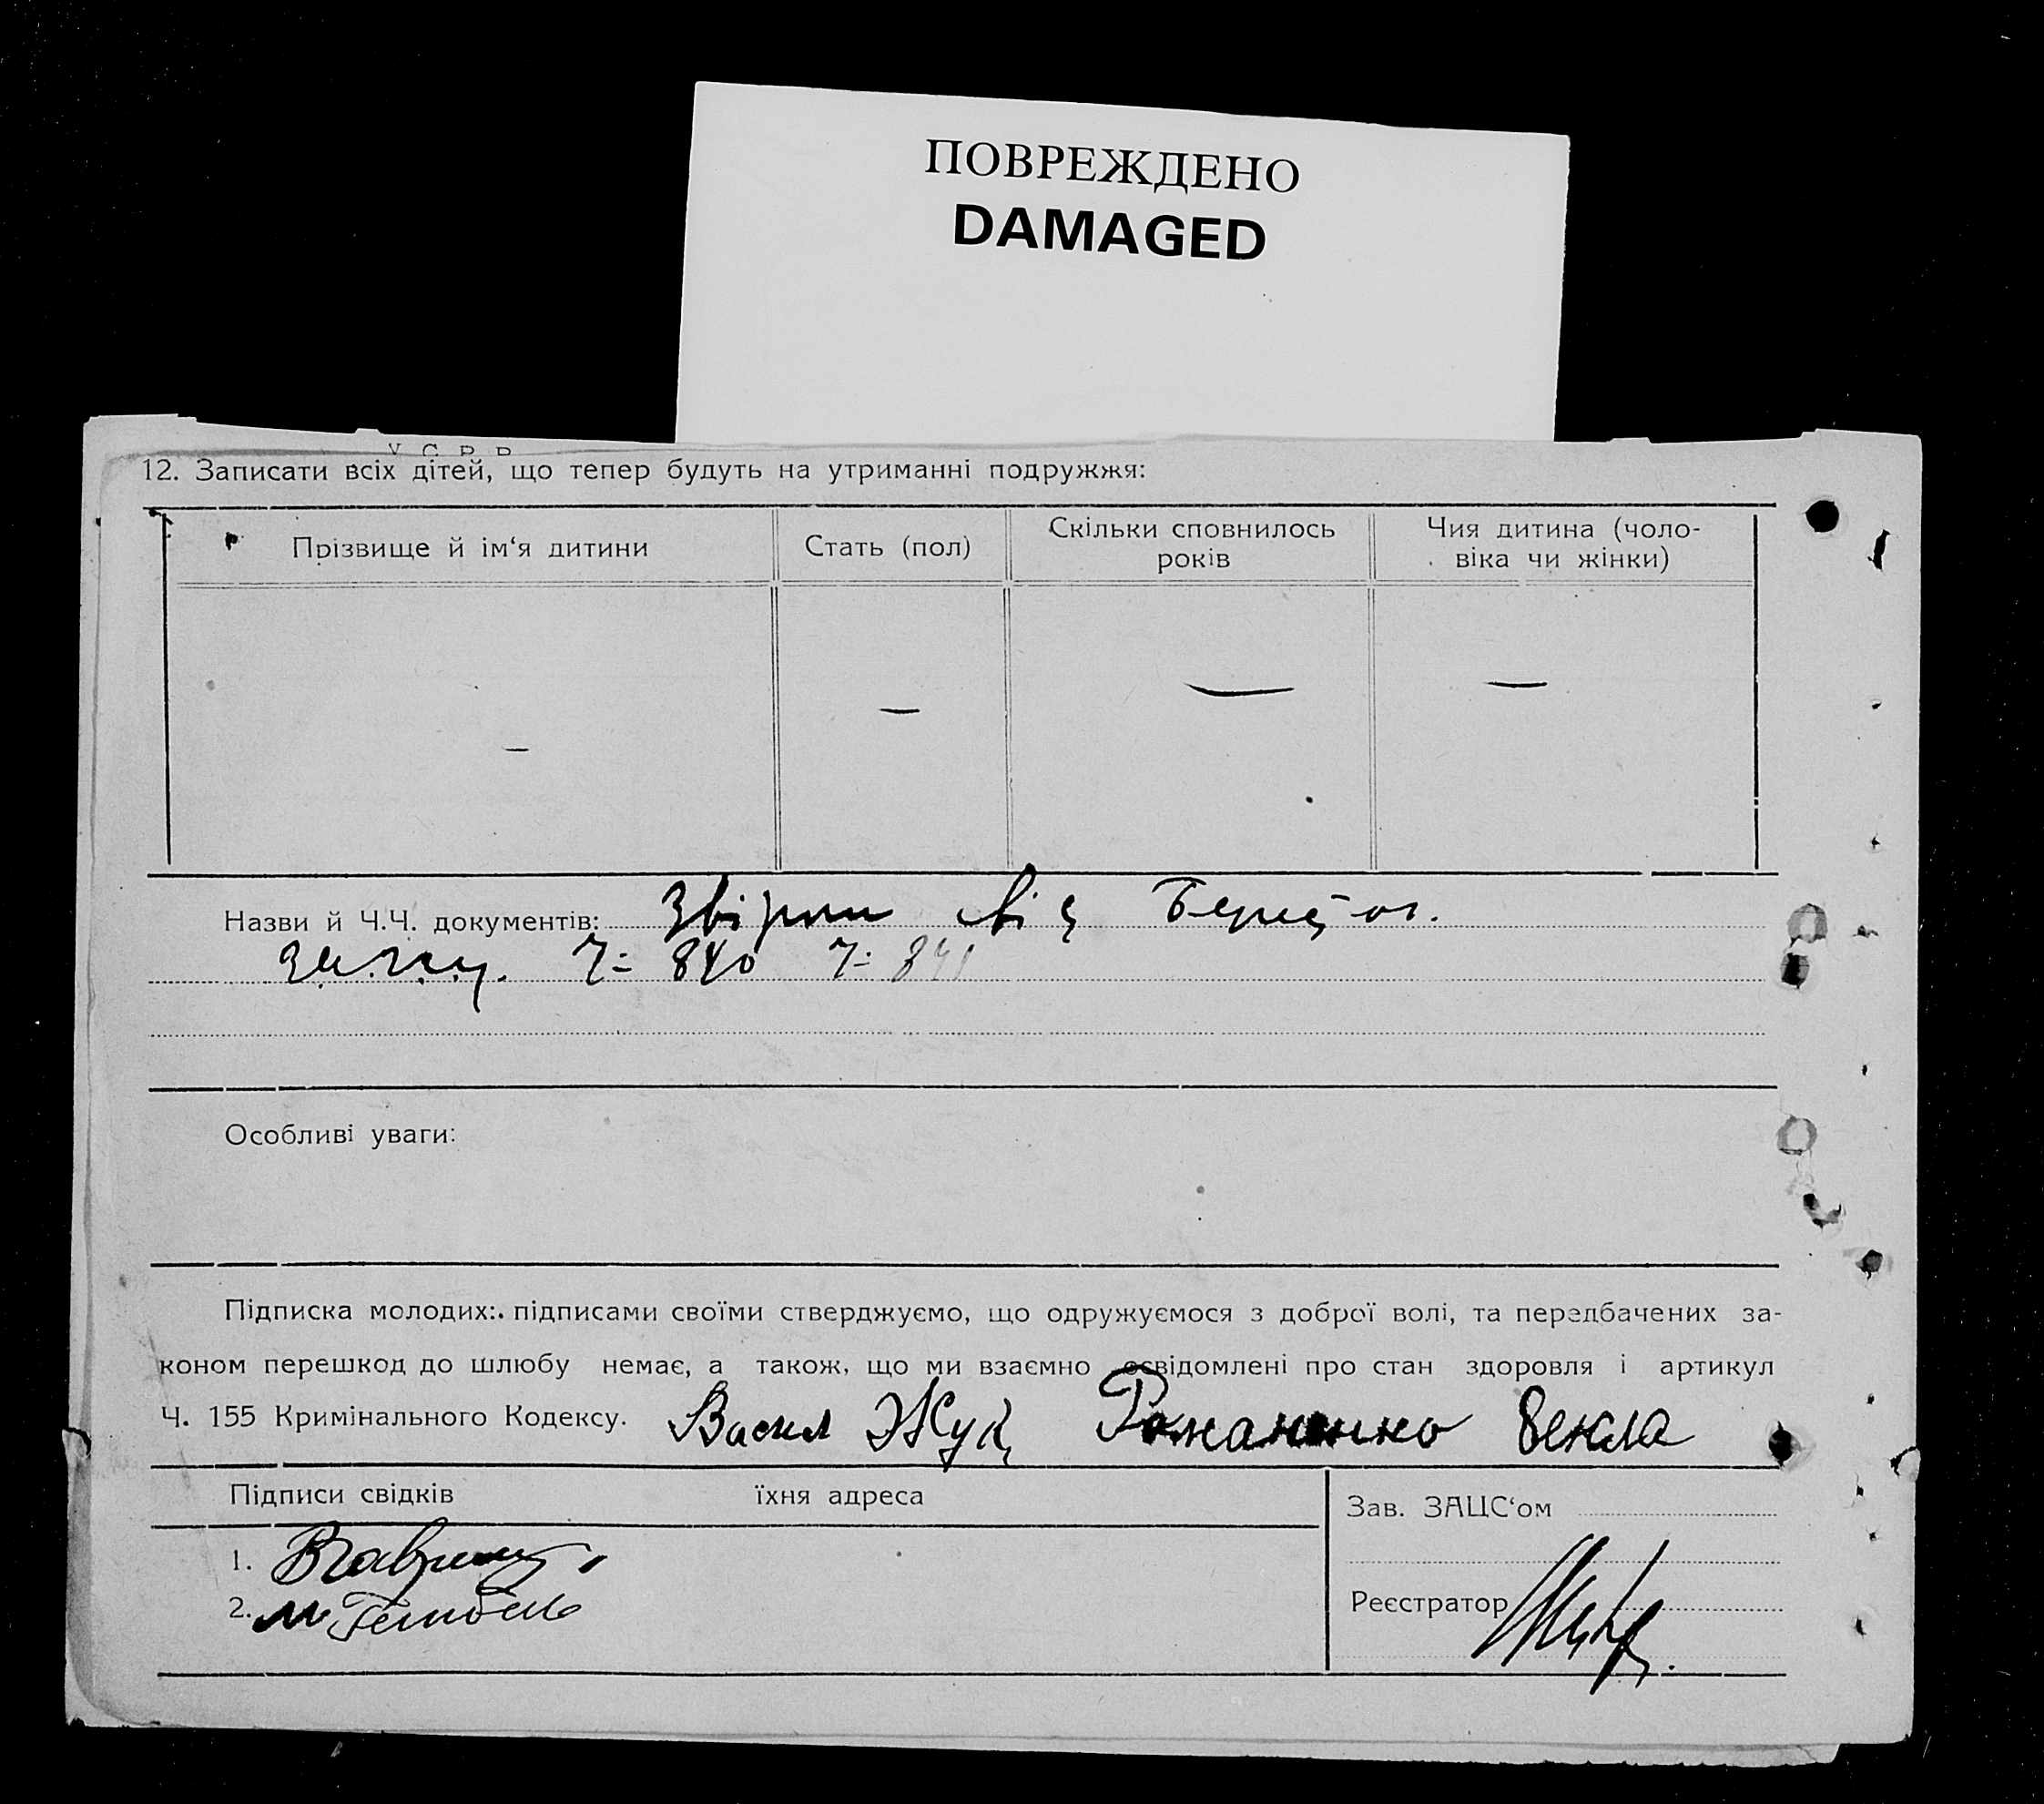 ПОВРЕЖДЕНО
DAMAGED
У С Р Р
12. Записати всіх дітей, що тепер будуть на утриманні подружжя:
Прізвище й ім‘я дитини Стать (пол) Скільки сповнилось років Чия дитина (чоло-віка чи жінки)
— — — —
Назви й Ч.Ч. документів:
Ч= 840 Ч= 841
Особливі уваги:
Підписка молодих: підписами своїми стверджуємо, що одружуємося з доброї волі, та передбачених за-
коном перешкод до шлюбу немає, а також, що ми взаємно освідомлені про стан здоровля і артикул
Ч. 155 Кримінального Кодексу. Васил Жук Романенко Векла
Підписи свідків їхня адреса
Зав. ЗАЦС‘ом
1.
2.
Реєстратор